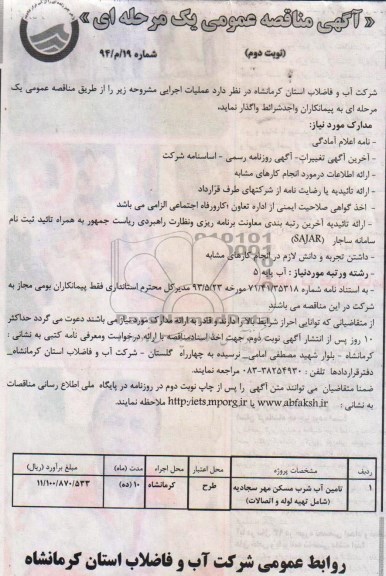 « آگهی مناقصه عمومی یک مرحله ای »
(نوبت دوم)
شماره ۱۹/م/۹۴
شرکت آب و فاضلاب استان کرمانشاه در نظر دارد عملیات اجرایی مشروحه زیر را از طریق مناقصه عمومی یک
مرحله ای به پیمانکاران واجدشرائط واگذار نماید.
مدارک مورد نیاز:
- نامه اعلام آمادگی
- آخرین آگهی تغییرات- آگهی روزنامه رسمی - اساسنامه شرکت
- ارائه اطلاعات درمورد انجام کارهای مشابه
- ارائه تائیدیه یا رضایت نامه از شرکتهای طرف قرارداد
- اخذ گواهی صلاحیت ایمنی از اداره تعاون ؛کارورفاه اجتماعی الزامی می باشد
- ارائه تائیدیه آخرین رتبه بندی معاونت برنامه ریزی ونظارت راهبردی ریاست جمهور به همراه تائید ثبت نام
سامانه ساجار (SAJAR)
- داشتن تجربه و دانش لازم در انجام کارهای مشابه
- رشته ورتبه موردنیاز : آب پایه ۵
- به استناد نامه شماره ۷۱/۴۱/۳۵۳۱۸ مورخه ۹۳/۵/۲۳ مدیرکل محترم استانداری فقط پیمانکاران بومی مجاز به
شرکت در این مناقصه می باشند
از متقاضیانی که توانایی احراز شرایط بالا را دارند و قادر به ارائه مدارک مورد نیاز می باشند دعوت می گردد حداکثر
۱۰ روز پس از انتشار آگهی نوبت دوم، جهت اخذ اسناد مناقصه با ارائه درخواست ومعرفی نامه کتبی به نشانی :
کرمانشاه - بلوار شهید مصطفی امامی_ نرسیده به چهارراه گلستان - شرکت آب و فاضلاب استان کرمانشاه_
دفترقراردادها تلفن : ۳۸۲۵۴۹۳۰-۰۸۳ مراجعه نمایند.
ضمنا متقاضیان می توانند متن آگهی را پس از چاپ نوبت دوم در روزنامه در پایگاه ملی اطلاع رسانی مناقصات
به نشانی : www.abfaksh.ir یا http:/iets.mporg.ir ملاحظه نمایند.
ردیف مشخصات پروژه محل اعتبار محل اجراء مدت (ماه) مبلغ برآورد (ریال)
۱ تامین آب شرب مسکن مهر سجادیه (شامل تهیه لوله و اتصالات) طرح کرمانشاه ۱۰ (ده) ۱۱/۱۰۰/۸۷۰/۵۳۳
روابط عمومی شرکت آب و فاضلاب استان کرمانشاه